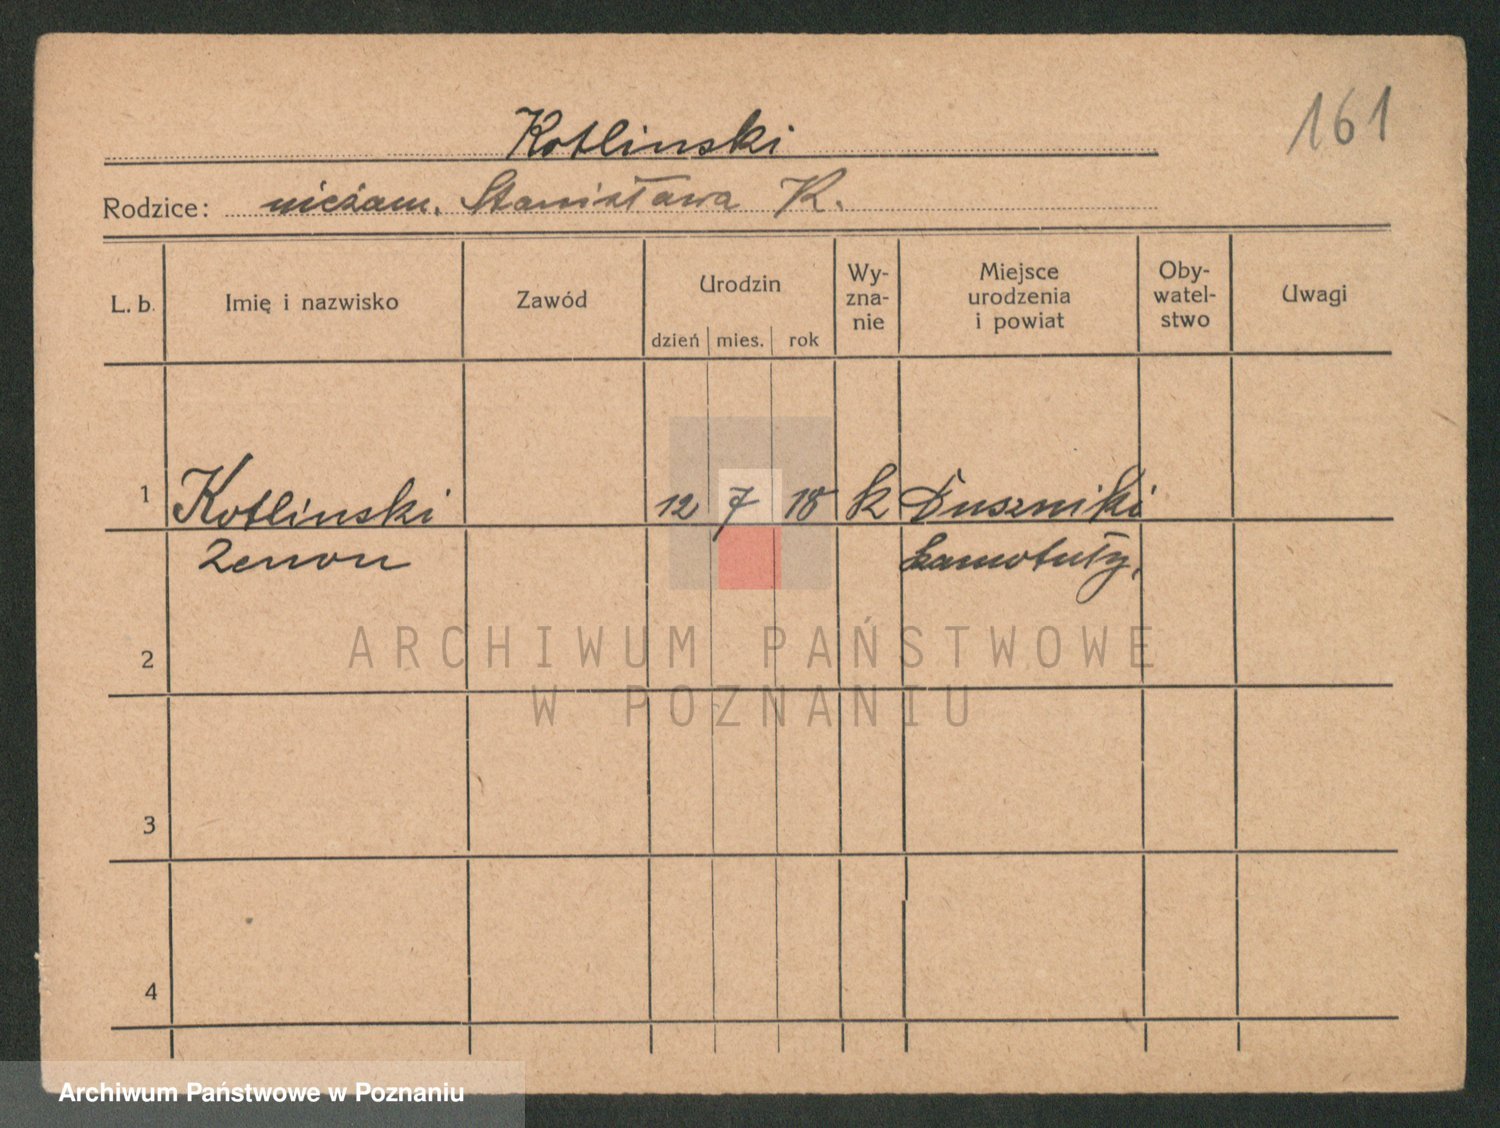 161
Kotlinski
Rodzice: nieżam. Stanisława K.
L. b. Imię i nazwisko Zawód Urodzin dzień mies. rok Wy-zna-nie Miejsce urodzenia i powiat Oby-watel-stwo Uwagi
1 Kotlinski 12 7 18 k Duszniki
Zenon Szamotuły,
2
ARCHIWUM PAŃSTWOWE
W POZNANIU
3
4
Archiwum Państwowe w Poznaniu